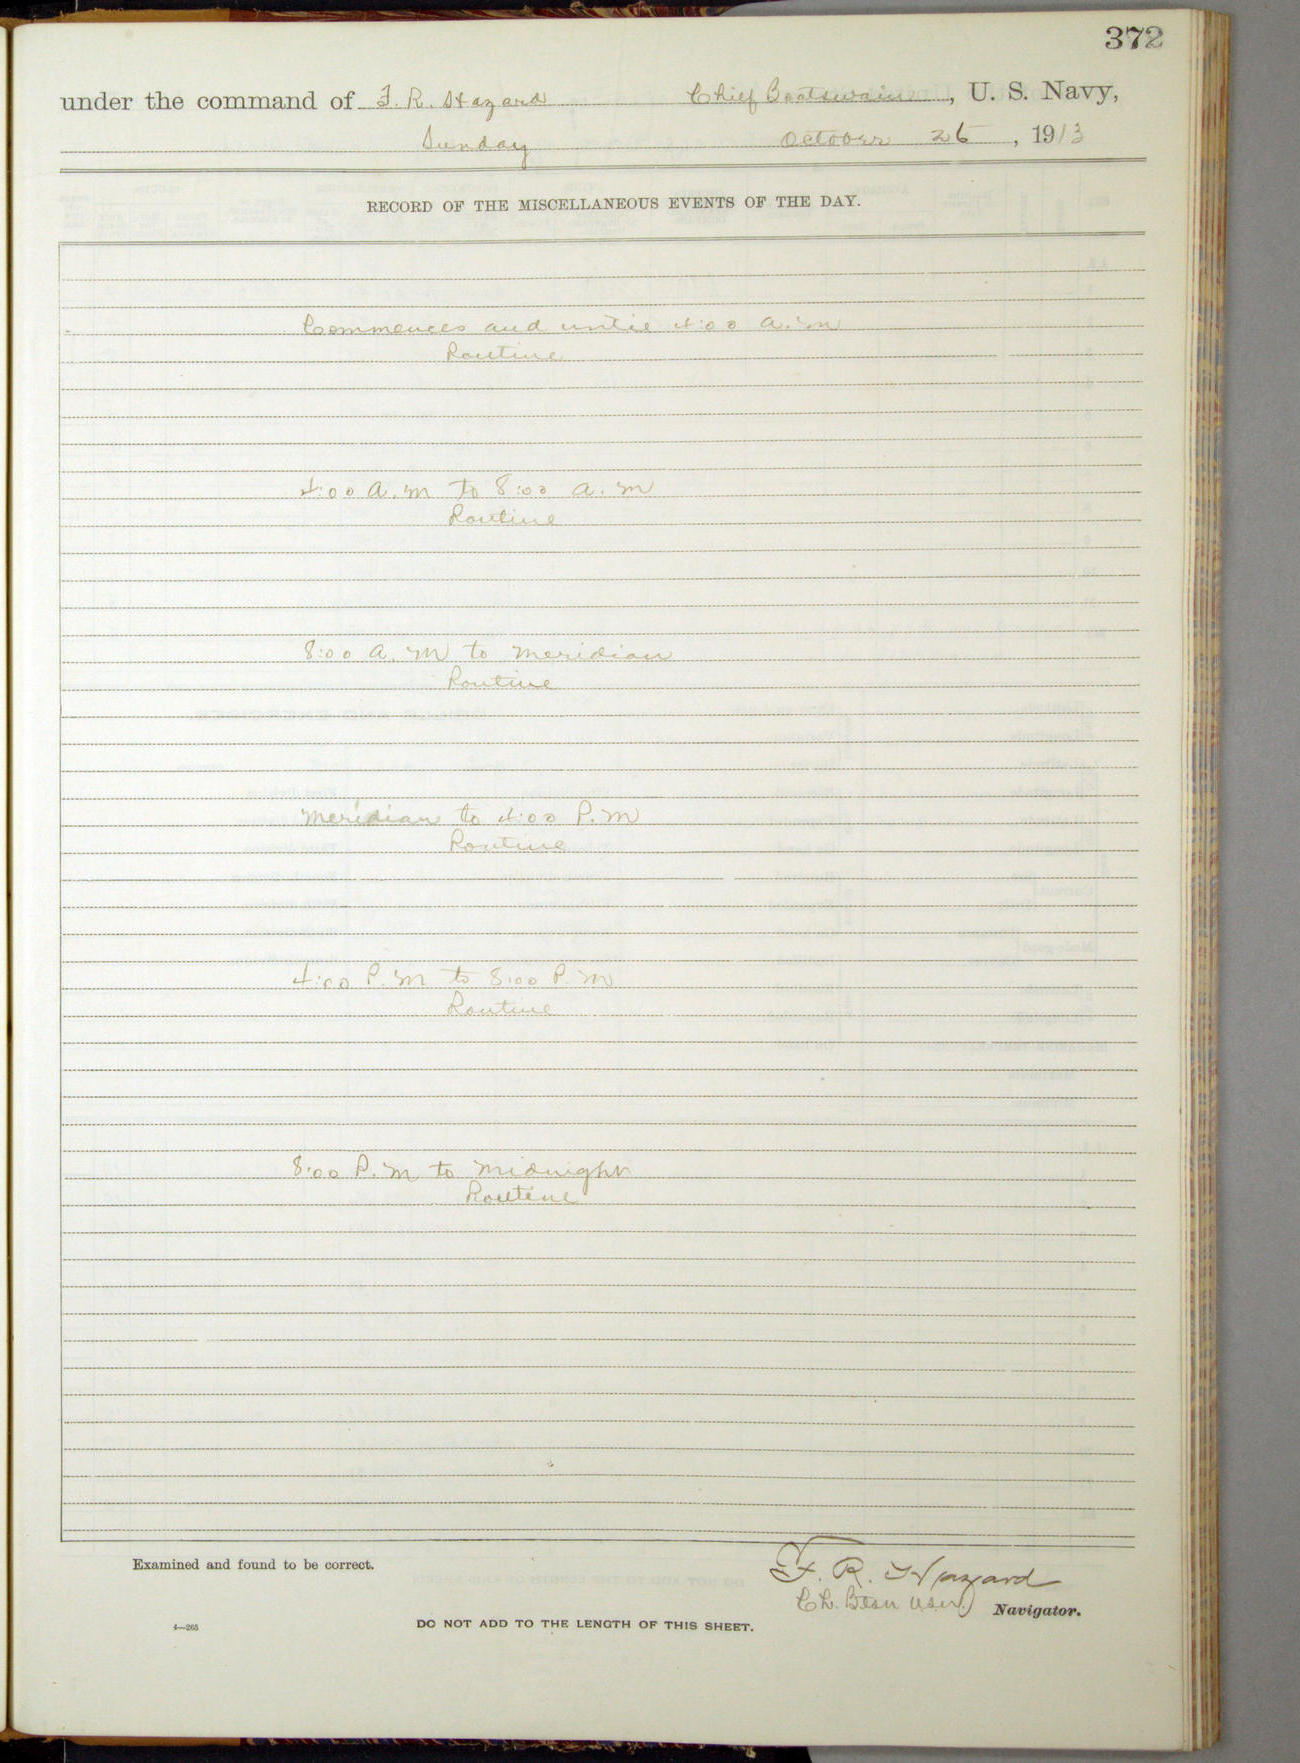 372
under the command of F. R. Hazard Chief Boatswain, U. S. Navy,
Sunday October 26, 1913
RECORD OF THE MISCELLANEOUS EVENTS OF THE DAY.
Commences and until 4:00 a.m
Routine
4:00 a.m to 8:00 a.m
Routine
8:00 a.m to meridian
Routine
Meridian to 4:00 P.m
Routine
4:00 P.m to 8:00 P.m
Routine
8:00 P.m to midnight
Routine
Examined and found to be correct.
F. R. Hazard
Ch. Btsn U.S.N. Navigator.
4—265
DO NOT ADD TO THE LENGTH OF THIS SHEET.